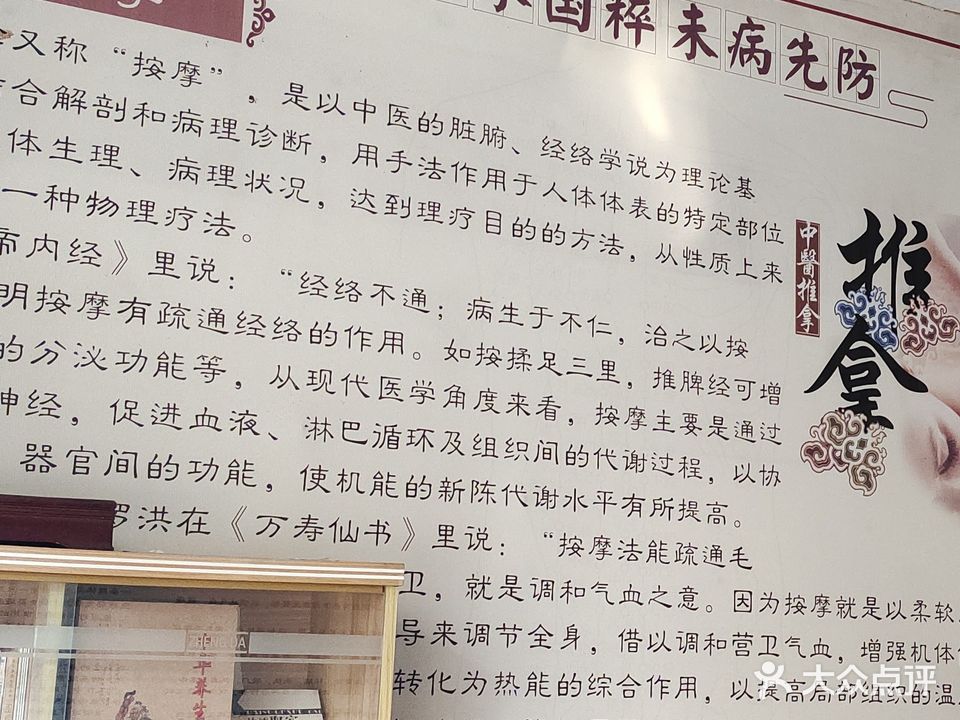 国粹未病先防
又称“按摩”,是以中医的脏腑、经络学说为理论基
合解剖和病理诊断,用手法作用于人体体表的特定部位
体生理、病理状况,达到理疗目的的方法,从性质上来
一种物理疗法。
内经》里说:“经络不通;病生于不仁,治之以按
明按摩有疏通经络的作用。如按揉足三里,推脾经可增
的分泌功能等,从现代医学角度来看,按摩主要是通过
神经,促进血液、淋巴循环及组织间的代谢过程,以协
器官间的功能,使机能的新陈代谢水平有所提高。
洪在《万寿仙书》里说:“按摩法能疏通毛
卫,就是调和气血之意。因为按摩就是以柔软
导来调节全身,借以调和营卫气血,增强机体
转化为热能的综合作用,以提高局部组织的温
中醫推拿
推拿
华养生
大众点评